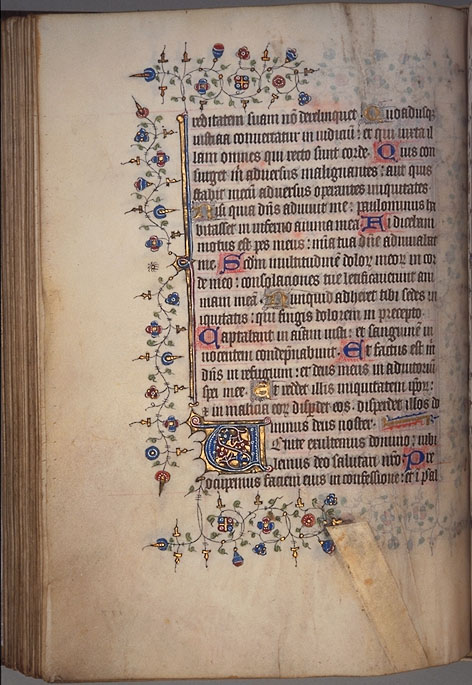 reditatem suam nō derelinquet. Quoadusq;
iusticia conuertatur in iudiciū: et qui iuxta il
lam omnes qui recto sunt corde. Quis con
surget m̄ aduersus malignantes: aut quis
stabit mecū aduersus operantes iniquitates.
Nisi quia dn̄s adiuuit me: paulominus ha
bitasset in inferno anima mea. Si dicebam
motus est pes meus: mīa tua dn̄e adiuuabat
me. Scd̄m multitudinē dolorꝝ meorꝝ in cor
de meo: consolaciones tue letificauerunt ani
mam meā. Nunquid adheret tibi sedes in
iquitatis: qui fingis dolorem in precepto.
Captabant in aīam iusti: et sanguinē in
nocentem condepnabunt. Et factus est m̄
dn̄s in refugium: et deus meus in adiutoriū
spei mee. Et reddet illis iniquitatem ipoꝝ:
⁊ in malicia eoꝝ disperdet eos: disperdet illos do
minus deus noster.
Uenite exultemus domino: iubi
lemus deo salutari nr̄o. Pre
occupemus faciem eius in confessione: et ī psal